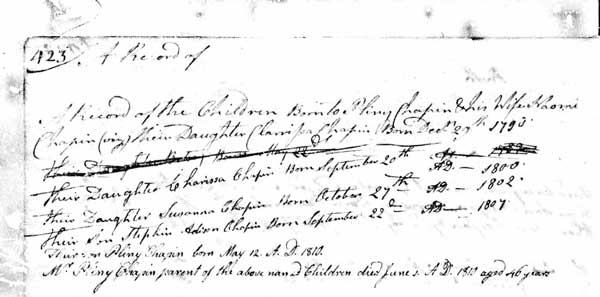 423 A Record of
A Record of the Children Born to Pliny Chapin & his Wife
Chapin (viz) Their Daughter Clarissa Chapin Born Decr 29th
Their Daughter Born May 22d
Their Daughter Charissa Chapin Born September 20th AD. — 1800
Their Daughter Susanna Chapin Born October 27th AD. — 1802.
Their Son Stephen Chapin Born September 22d AD. — 1807
Their son Pliny Chapin born May 12. A. D. 1810.
Mr Pliny Chapin parent of the above named Children died June 2. A.D. 1810 aged 46 years